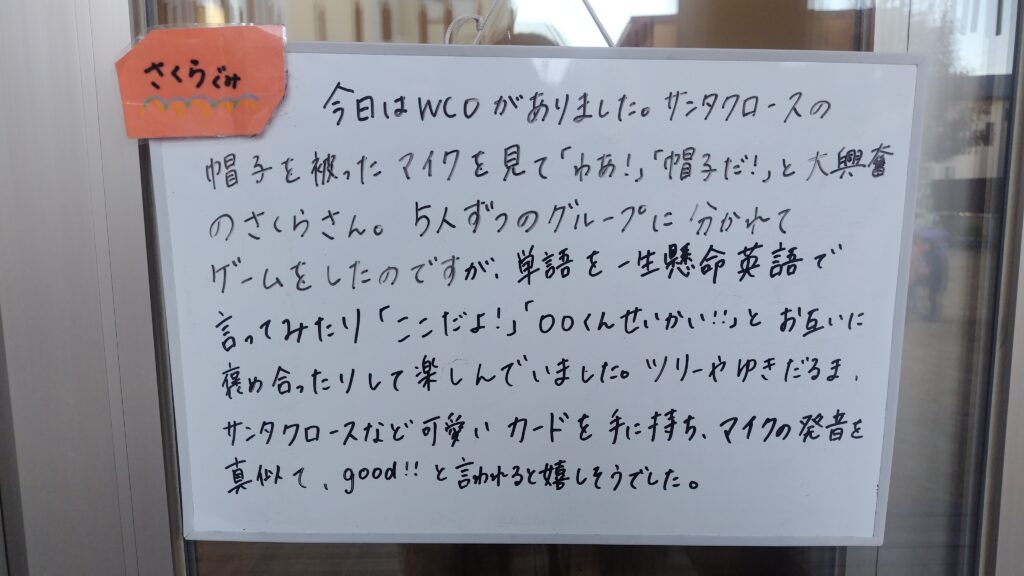 さくらぐみ
今日はWCOがありました。サンタクロースの
帽子を被ったマイクを見て「わあ!」「帽子だ!」と大興奮
のさくらさん。5人ずつのグループに分かれて
ゲームをしたのですが、単語を一生懸命英語で
言ってみたり「ここだよ!」「〇〇くんせいかい!!」とお互いに
褒め合ったりして楽しんでいました。ツリーやゆきだるま、
サンタクロースなど可愛いカードを手に持ち、マイクの発音を
真似て、good!!と言われると嬉しそうでした。